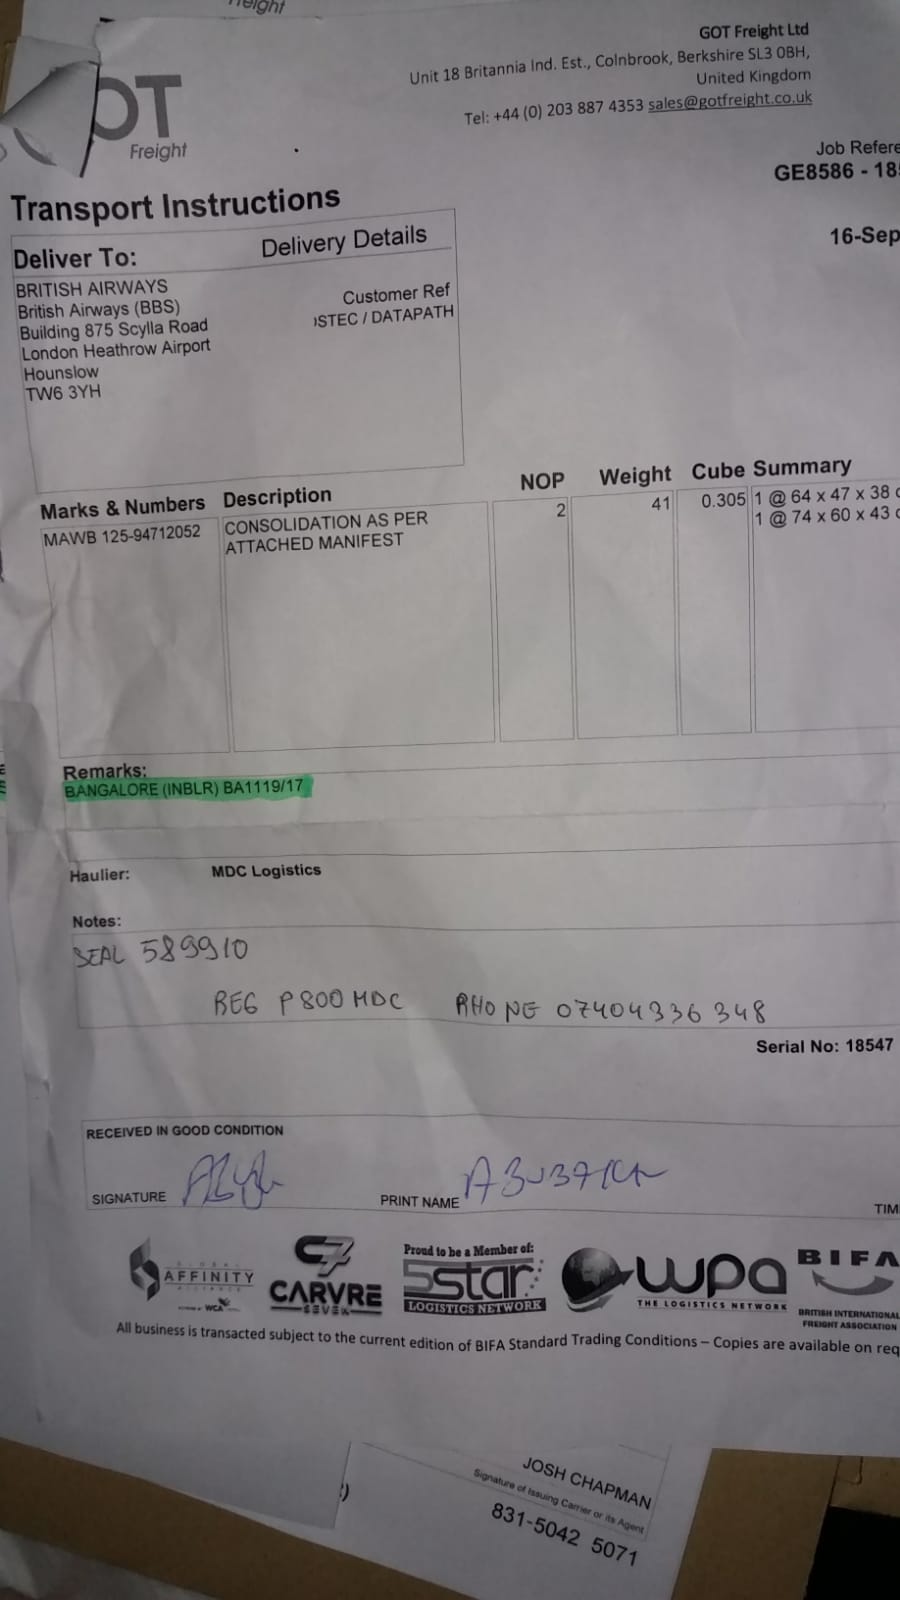 GOT Freight Ltd
Unit 18 Britannia Ind. Est., Colnbrook, Berkshire SL3 0BH,
United Kingdom
Tel: +44 (0) 203 887 4353 sales@gotfreight.co.uk
OT
Freight
Job Refere
GE8586 - 18
16-Sep
Transport Instructions
Deliver To: Delivery Details
BRITISH AIRWAYS
British Airways (BBS)
Building 875 Scylla Road
London Heathrow Airport
Hounslow
TW6 3YH
Customer Ref
STEC / DATAPATH
Marks & Numbers Description NOP Weight Cube Summary
MAWB 125-94712052 CONSOLIDATION AS PER 2 41 0.305 1 @ 64 x 47 x 38 c
ATTACHED MANIFEST 1 @ 74 x 60 x 43 c
Remarks:
BANGALORE (INBLR) BA1119/17
Haulier: MDC Logistics
Notes:
SEAL 589910
REG P800MDC PHONE 07404336348
Serial No: 18547
RECEIVED IN GOOD CONDITION
SIGNATURE PRINT NAME TIM
AFFINITY
WCA
C7
CARVRE
SEVEN
Proud to be a Member of:
5star
LOGISTICS NETWORK
wpa
THE LOGISTICS NETWORK
BIFA
BRITISH INTERNATIONAL
FREIGHT ASSOCIATION
All business is transacted subject to the current edition of BIFA Standard Trading Conditions – Copies are available on req
JOSH CHAPMAN
Signature of Issuing Carrier or its Agent
831-5042 5071